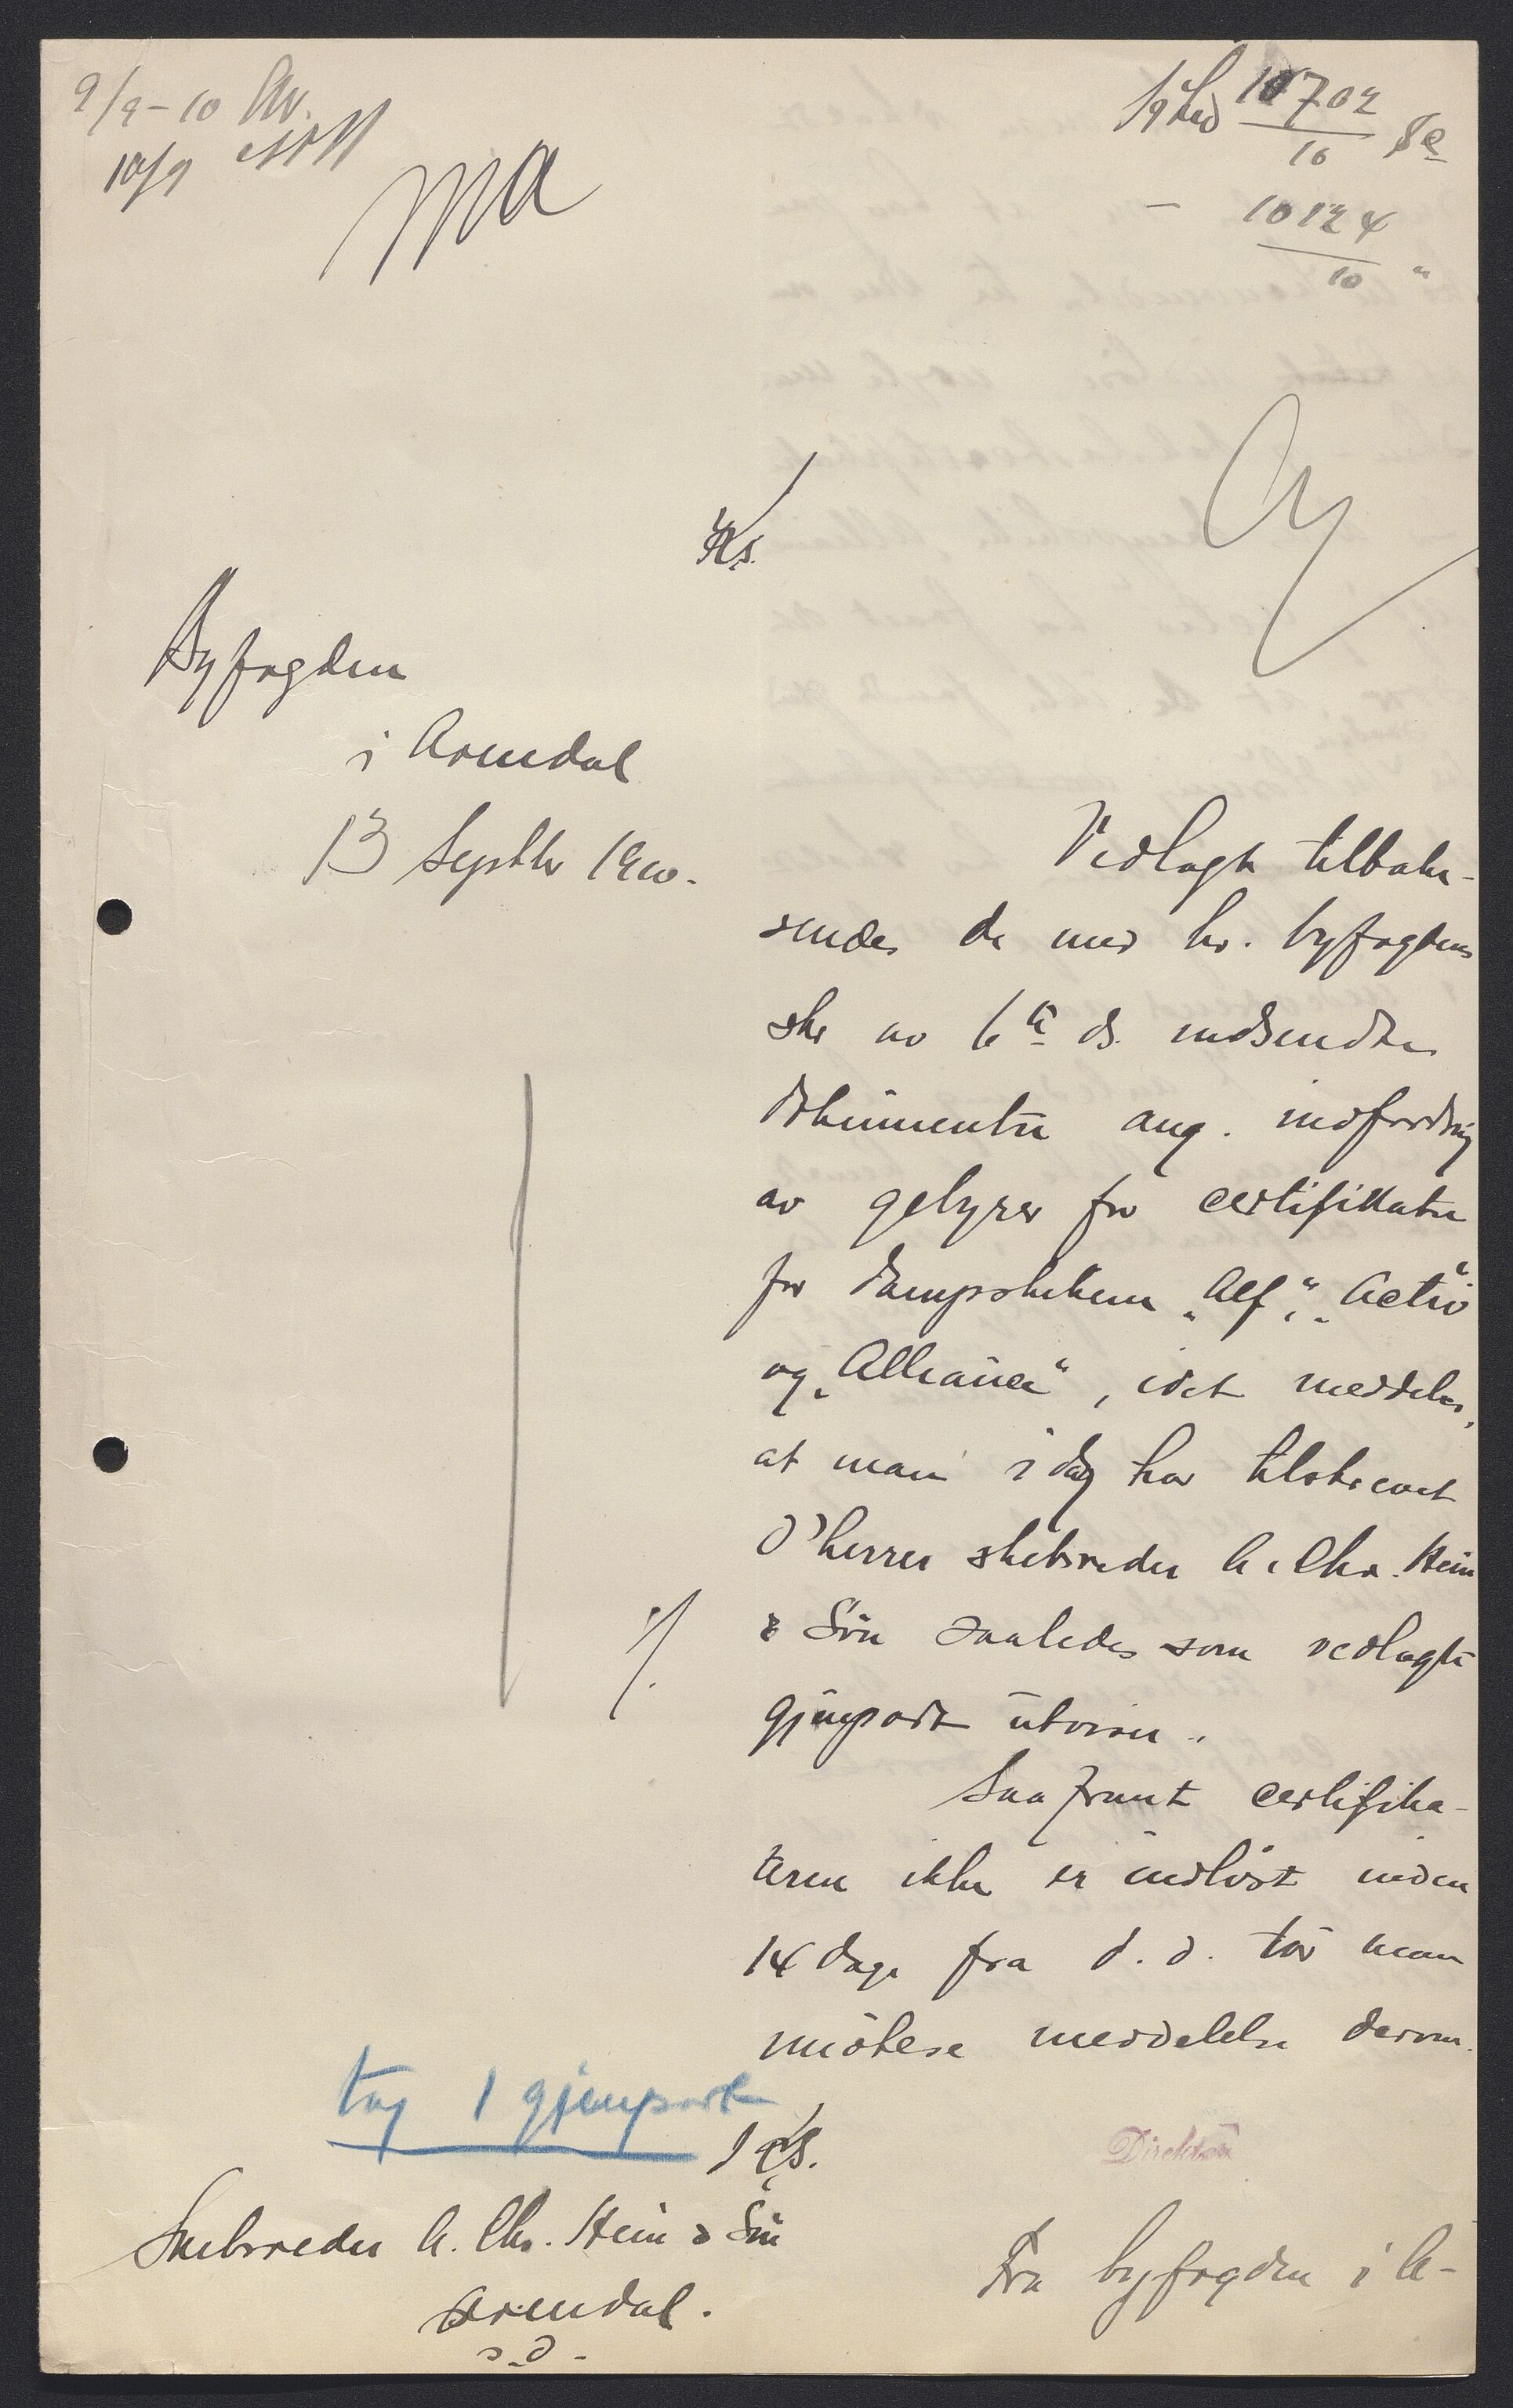 9/9-10
10/9
10702
16
-
10124
10 "
Byfogden
i Arendal
13 Septbr 1910.
Vedlagt tilbake-
sendes de med hr. byfogdens
skr av 6te ds. indsendte
dokumenter ang. indfordring
av gebyrer for certifikater
for dampskibene „Alf“, „Activ“
og „Alliance“, idet meddeles,
at man idag har tilskrevet
d'herrer skibsreder A. Chr. Hein
& Søn saaledes som vedlagte
gjenpart utviser.
Saafremt certifika-
terne ikke er indløst inden
14 dage fra d.d. tør man
imøtese meddelelse derom.
tag 1 gjenpart
Direktør
Skibsreder A. Chr. Hein & Søn
Arendal.
s.d.
Fra byfogden i A-